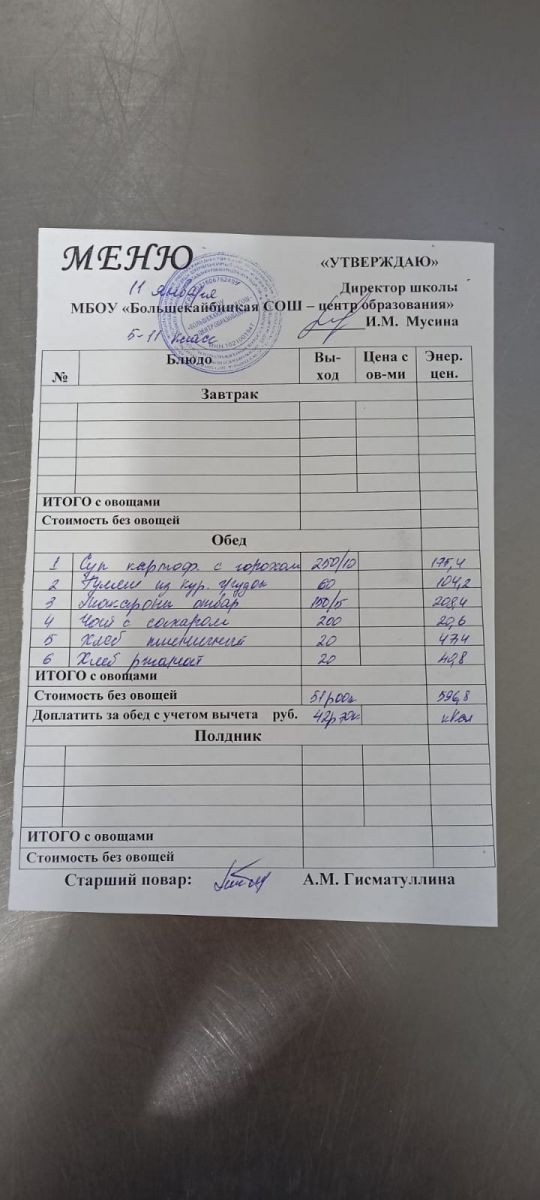 МЕНЮ
«УТВЕРЖДАЮ»
11 января
Директор школы
МБОУ «Большекайбицкая СОШ – центр образования»
И.М. Мусина
5-11 класс
№ Блюдо Вы-ход Цена с ов-ми Энер. цен.
Завтрак
ИТОГО с овощами
Стоимость без овощей
Обед
1 Суп картоф. с горохом 250/10 175,4
2 Гуляш из кур. грудок 60 104,2
3 Макароны отвар 150/5 208,4
4 Чай с сахаром 200 20,6
5 Хлеб пшеничный 20 47,4
6 Хлеб ржаной 20 40,8
ИТОГО с овощами
Стоимость без овощей 51р00к 596,8
Доплатить за обед с учетом вычета руб. 42р70к кКал
Полдник
ИТОГО с овощами
Стоимость без овощей
Старший повар: А.М. Гисматуллина